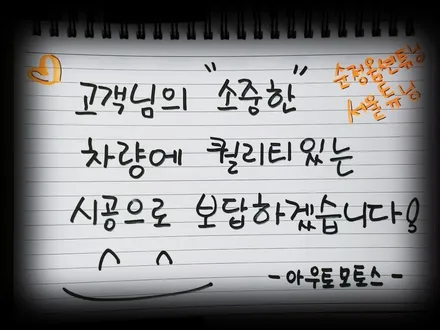 고객님의 "소중한"
순정옵션튜닝
서울튜닝
차량에 퀄리티있는
시공으로 보답하겠습니다!
^ ^
-아우토모토스-